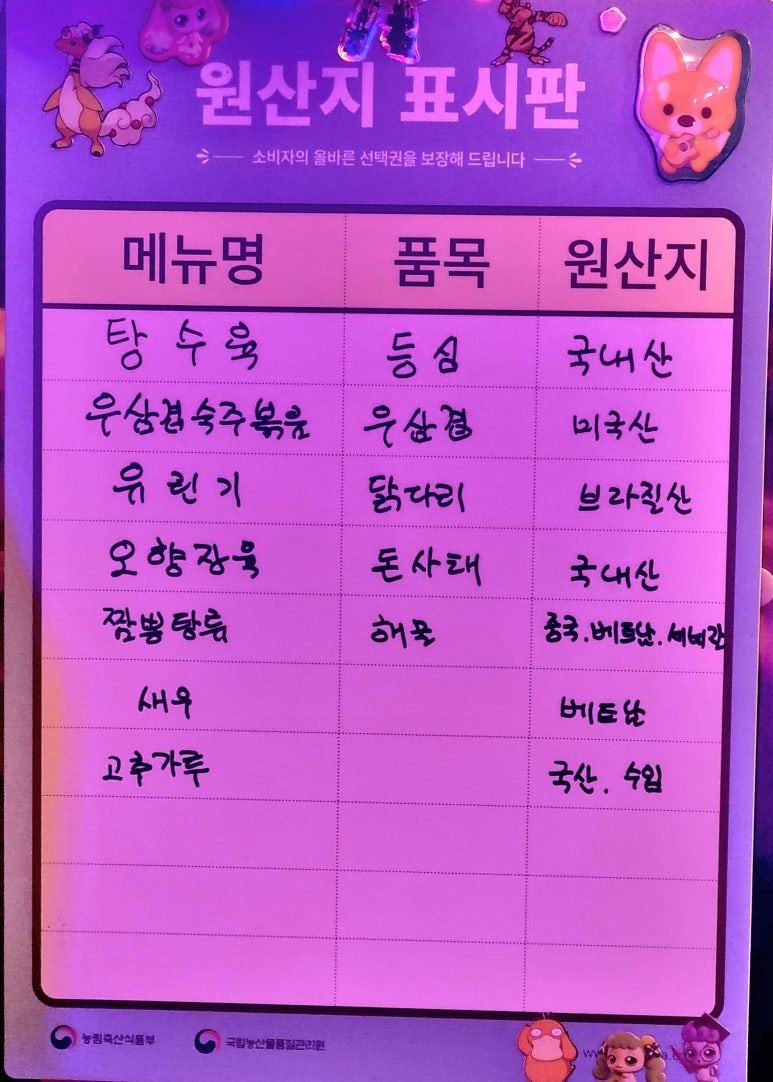 원산지 표시판
소비자의 올바른 선택권을 보장해 드립니다
메뉴명 품목 원산지
탕수육 등심 국내산
우삼겹숙주볶음 우삼겹 미국산
유린기 닭다리 브라질산
오향장육 돈사태 국내산
짬뽕탕류 해물 중국.베트남.세네갈
새우 베트남
고추가루 국산. 수입
농림축산식품부 국립농산물품질관리원